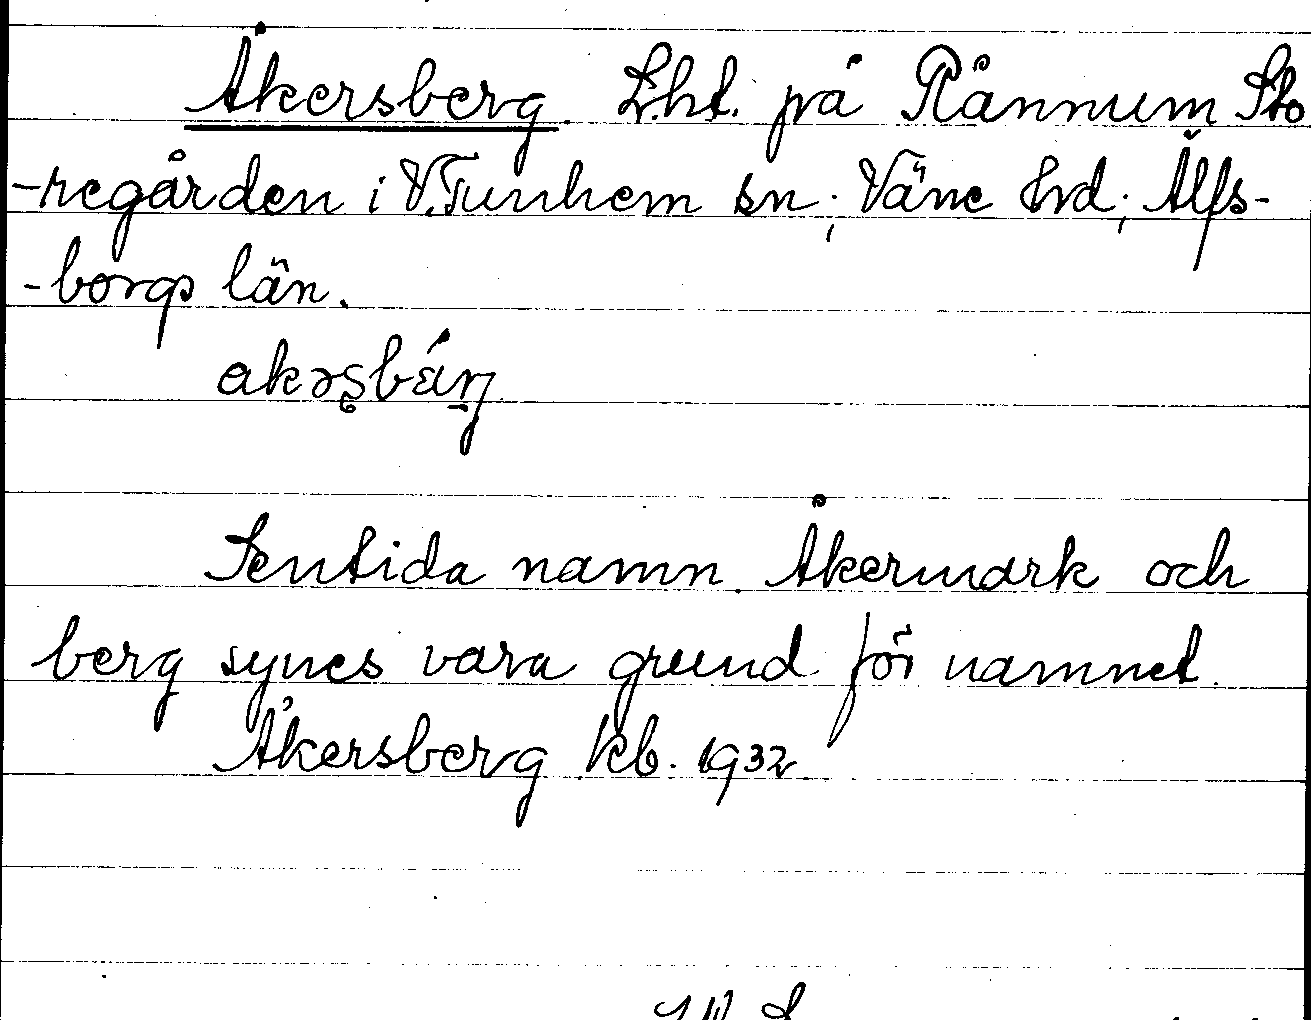 Åkersberg. Lht. på Rånnum Sto
-regården i V. Tunhem sn; Väne hrd; Älfs-
-borgs län.
akəʂbærj
Sentida namn. Åkermark och
berg synes vara grund för namnet.
Åkersberg kb. 1932